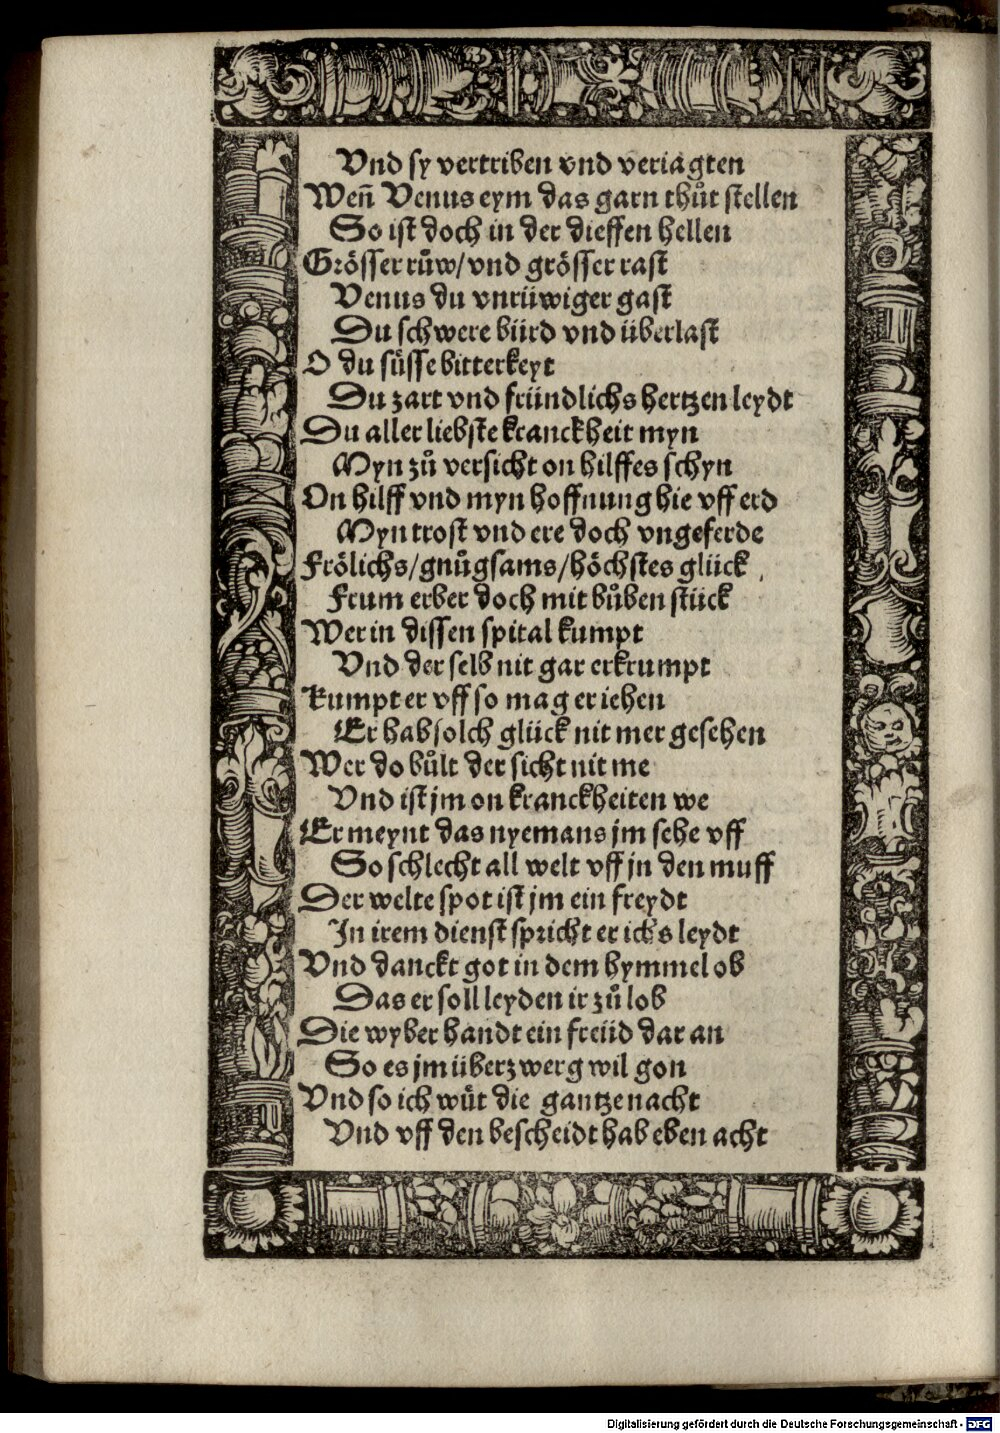 Vnd sy vertriben vnd veriagten
Wen̄ Venus eym das garn thůt stellen
So ist doch in der dieffen hellen
Grösser růw/vnd grösser rast
Venus du vnrüwiger gast
Du schwere bürd vnd überlast
O du süsse bitterkeyt
Du zart vnd fründlichs hertzen leydt
Du aller liebste kranckheit myn
Myn zů versicht on hilffes schyn
On hilff vnd myn hoffnung hie vff erd
Myn trost vnd ere doch vngeferde
Frölichs/gnůgsams/höchstes glück
Frum erber doch mit bůben stück
Wer in dissen spital kumpt
Vnd der selb nit gar erkrumpt
Kumpt er vff so mag er iehen
Er hab solch glück nit mer gesehen
Wer do bůlt der sicht nit me
Vnd ist jm on kranckheiten we
Er meynt das nyemans jm sehe vff
So schlecht all welt vff jn den muff
Der welte spot ist jm ein freydt
In irem dienst spricht er ichs leydt
Vnd danckt got in dem hymmel ob
Das er soll leyden ir zů lob
Die wyber handt ein freüd dar an
So es jm überzwerg wil gon
Vnd so ich wüt die gantze nacht
Vnd vff den bescheidt hab eben acht
Digitalisierung gefördert durch die Deutsche Forschungsgemeinschaft - DFG